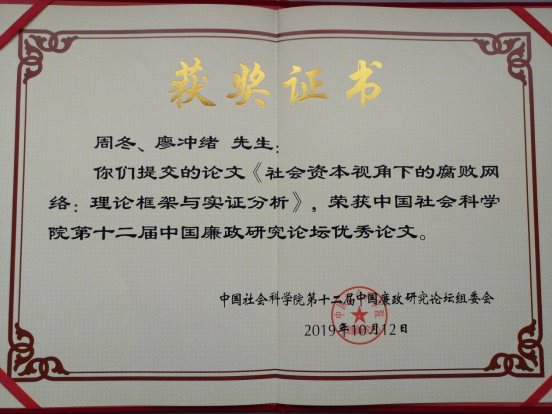 获奖证书
周冬、廖冲绪 先生：
你们提交的论文《社会资本视角下的腐败网
络：理论框架与实证分析》，荣获中国社会科学
院第十二届中国廉政研究论坛优秀论文。
中国社会科学院第十二届中国廉政研究论坛组委会
2019年10月12日